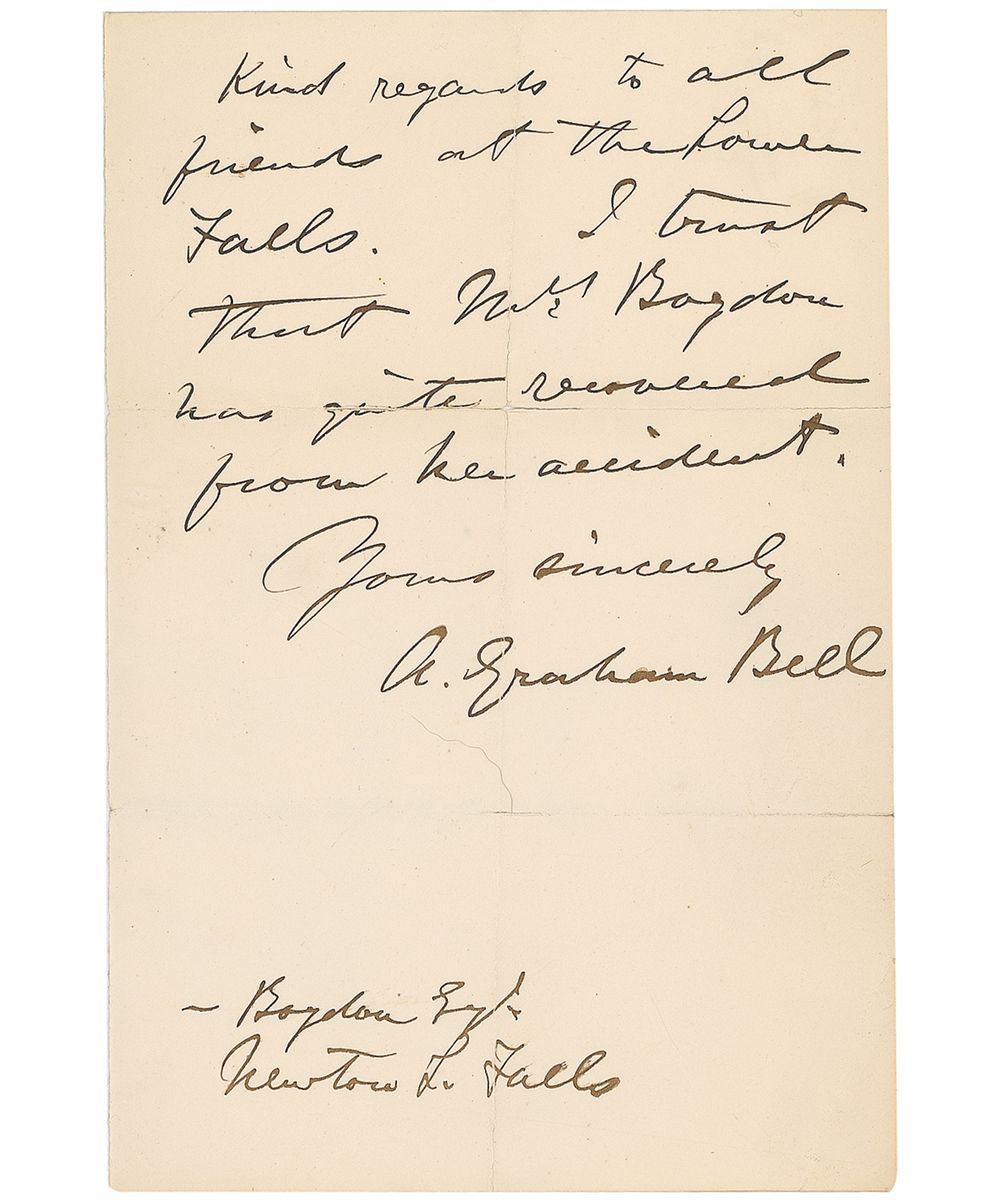 Kind regards to all
friends at the Lower
Falls. I trust
that Mrs Bogdon
has quite recovered
from her accident.
Yours sincerely
A. Graham Bell
– Bogdon Esq.
Newton L. Falls